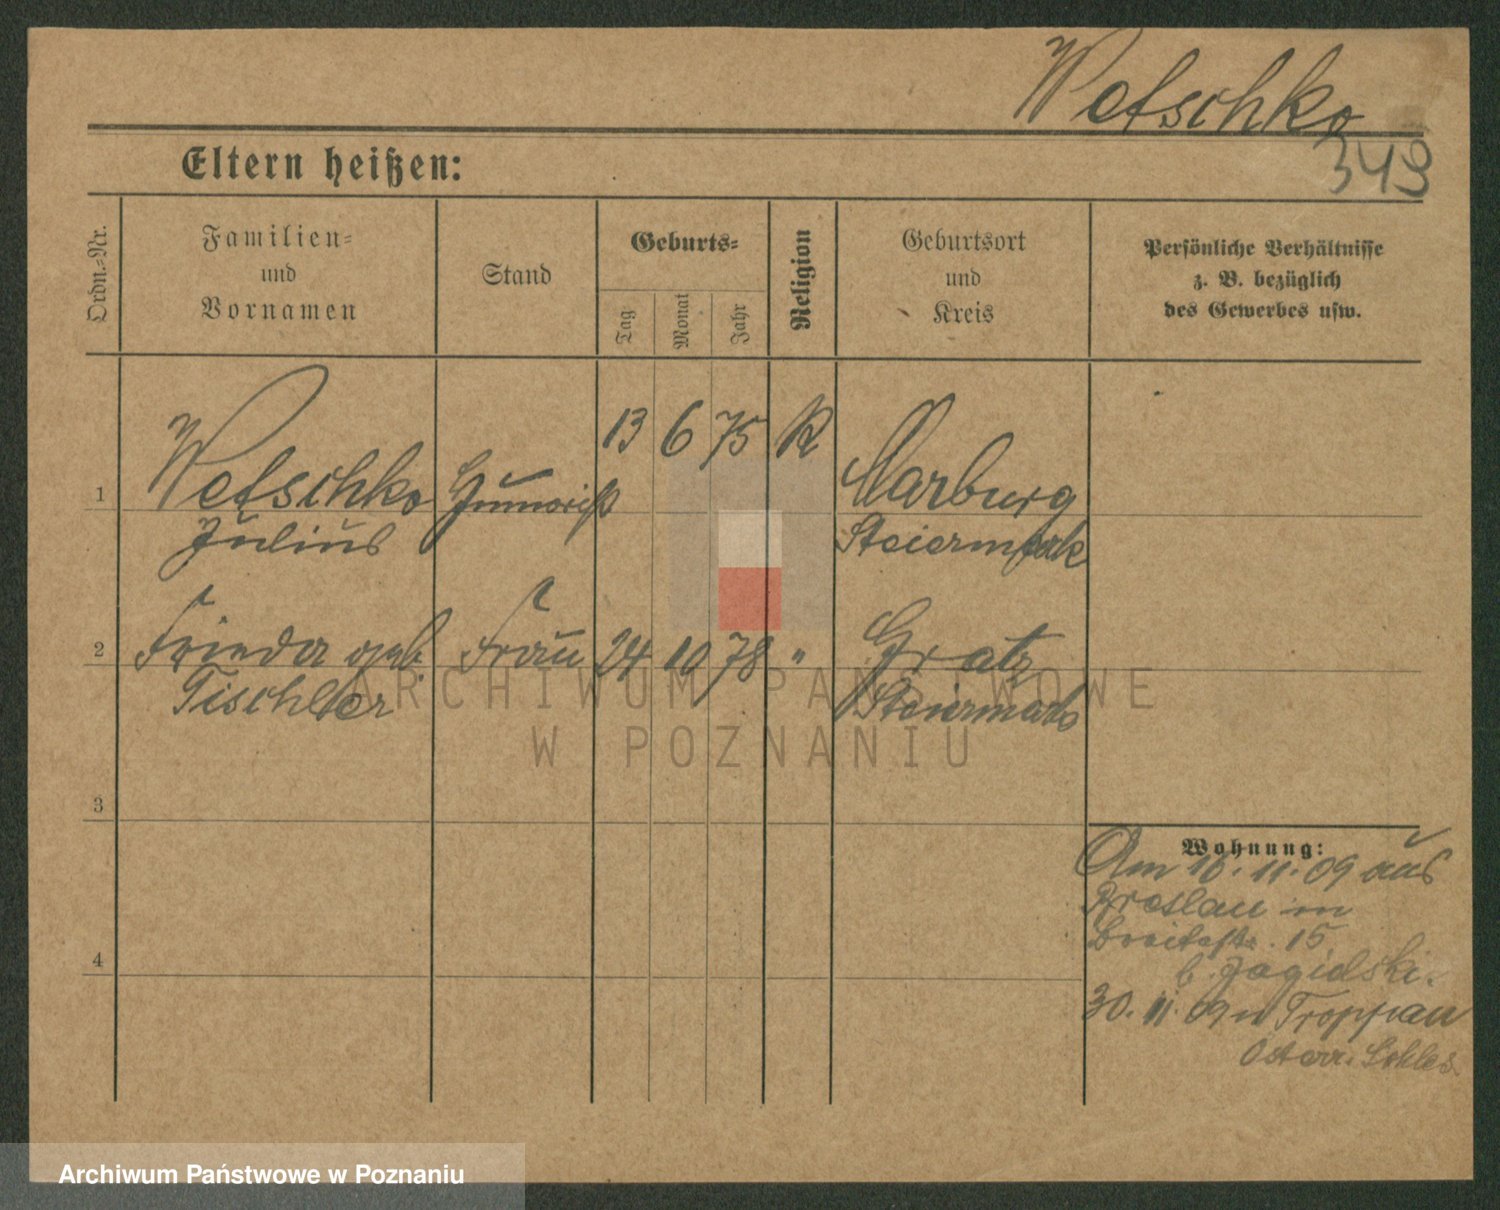 Wetschko
349
Eltern heißen:
Ordn.-Nr.
Familien-
und
Vornamen
Stand
Geburts-
Tag
Monat
Jahr
Religion
Geburtsort
und
Kreis
Persönliche Verhältnisse
z. B. bezüglich
des Gewerbes usw.
13 6 75 K
1 Wetschko Humorist Marburg
Julius Steiermark
2 Frieda geb Frau 24 10 78 " Gratz
Tischler Steiermark
3
Wohnung:
Am 16. 11. 09 aus
Breslau in
Breitestr. 15
b. Jagidski.
4
30. 11. 09 n Troppau
Österr. Schles.
ARCHIWUM PAŃSTWOWE
W POZNANIU
Archiwum Państwowe w Poznaniu